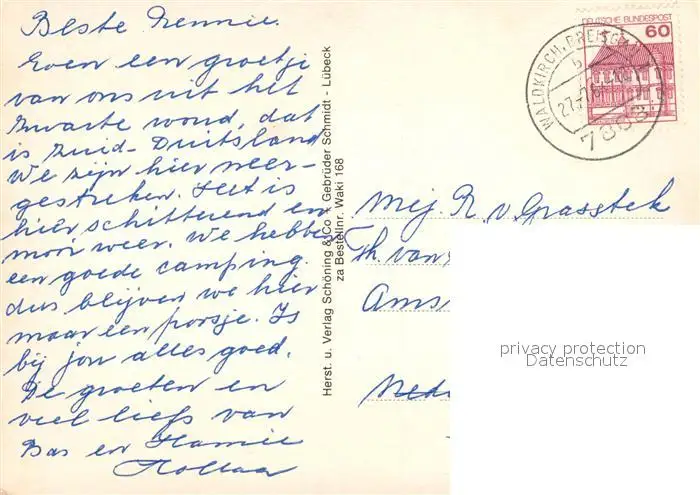 Beste Rennie.
Even een groetje
van ons uit het
Zwarte woud, dat
is Zuid-Duitsland
We zijn hier neer-
gestreken. Het is
hier schitterend en
mooi weer. We hebben
een goede camping.
dus blijven we hier
maar een porsje. Is
bij jou alles goed.
De groeten en
veel liefs van
Bas en
Herst. u. Verlag Schöning & Co + Gebrüder Schmidt - Lübeck
za Bestellnr. Waki 168
DEUTSCHE BUNDESPOST
60
WALDKIRCH, BREISGAU
7808
Mej. R. v. Grasstek
Th. van
Ams
Nede
privacy protection
Datenschutz